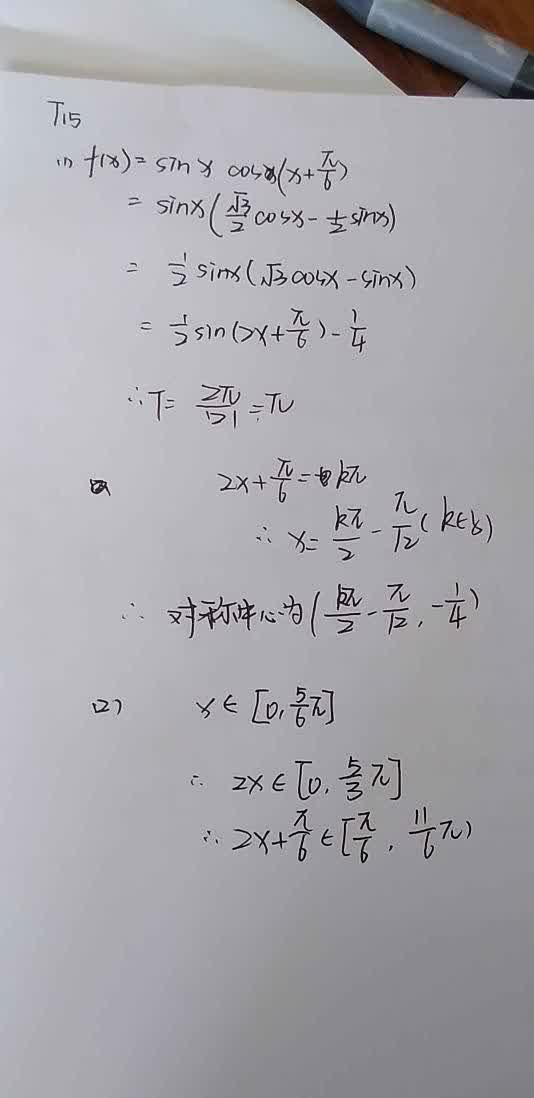 T15
(1) f(x) = sin x cos(x+π/6)
= sinx(√3/2 cosx - 1/2 sinx)
= 1/2 sinx(√3 cosx - sinx)
= 1/2 sin(2x+π/6) - 1/4
∴T= 2π/|2| = π
2x+π/6 = kπ
∴ x= kπ/2 - π/12 (k∈z)
∴ 对称中心为(kπ/2 - π/12, -1/4)
(2) x∈[0, 5/6π]
∴ 2x∈[0, 5/3π]
∴ 2x+π/6∈[π/6, 11/6π)